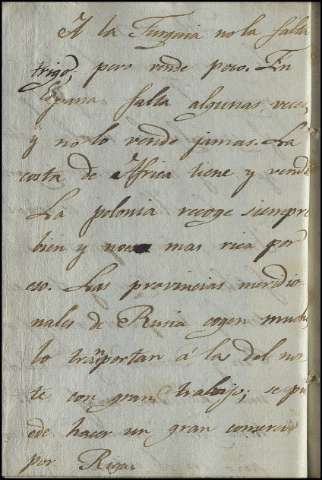 A la Turquia no la falta
trigo, pero vende poco. En
España falta algunas veces,
y no lo vende jamas. La
costa de Africa tiene y vende
La polonia recoge siempre
bien y no es mas rica por
eso. Las provincias meridio
nales de Rusia cogen mucho
lo trãsportan á la del nor
te con gran trabajo; se pu
ede hacer un gran comercio
por Riga.